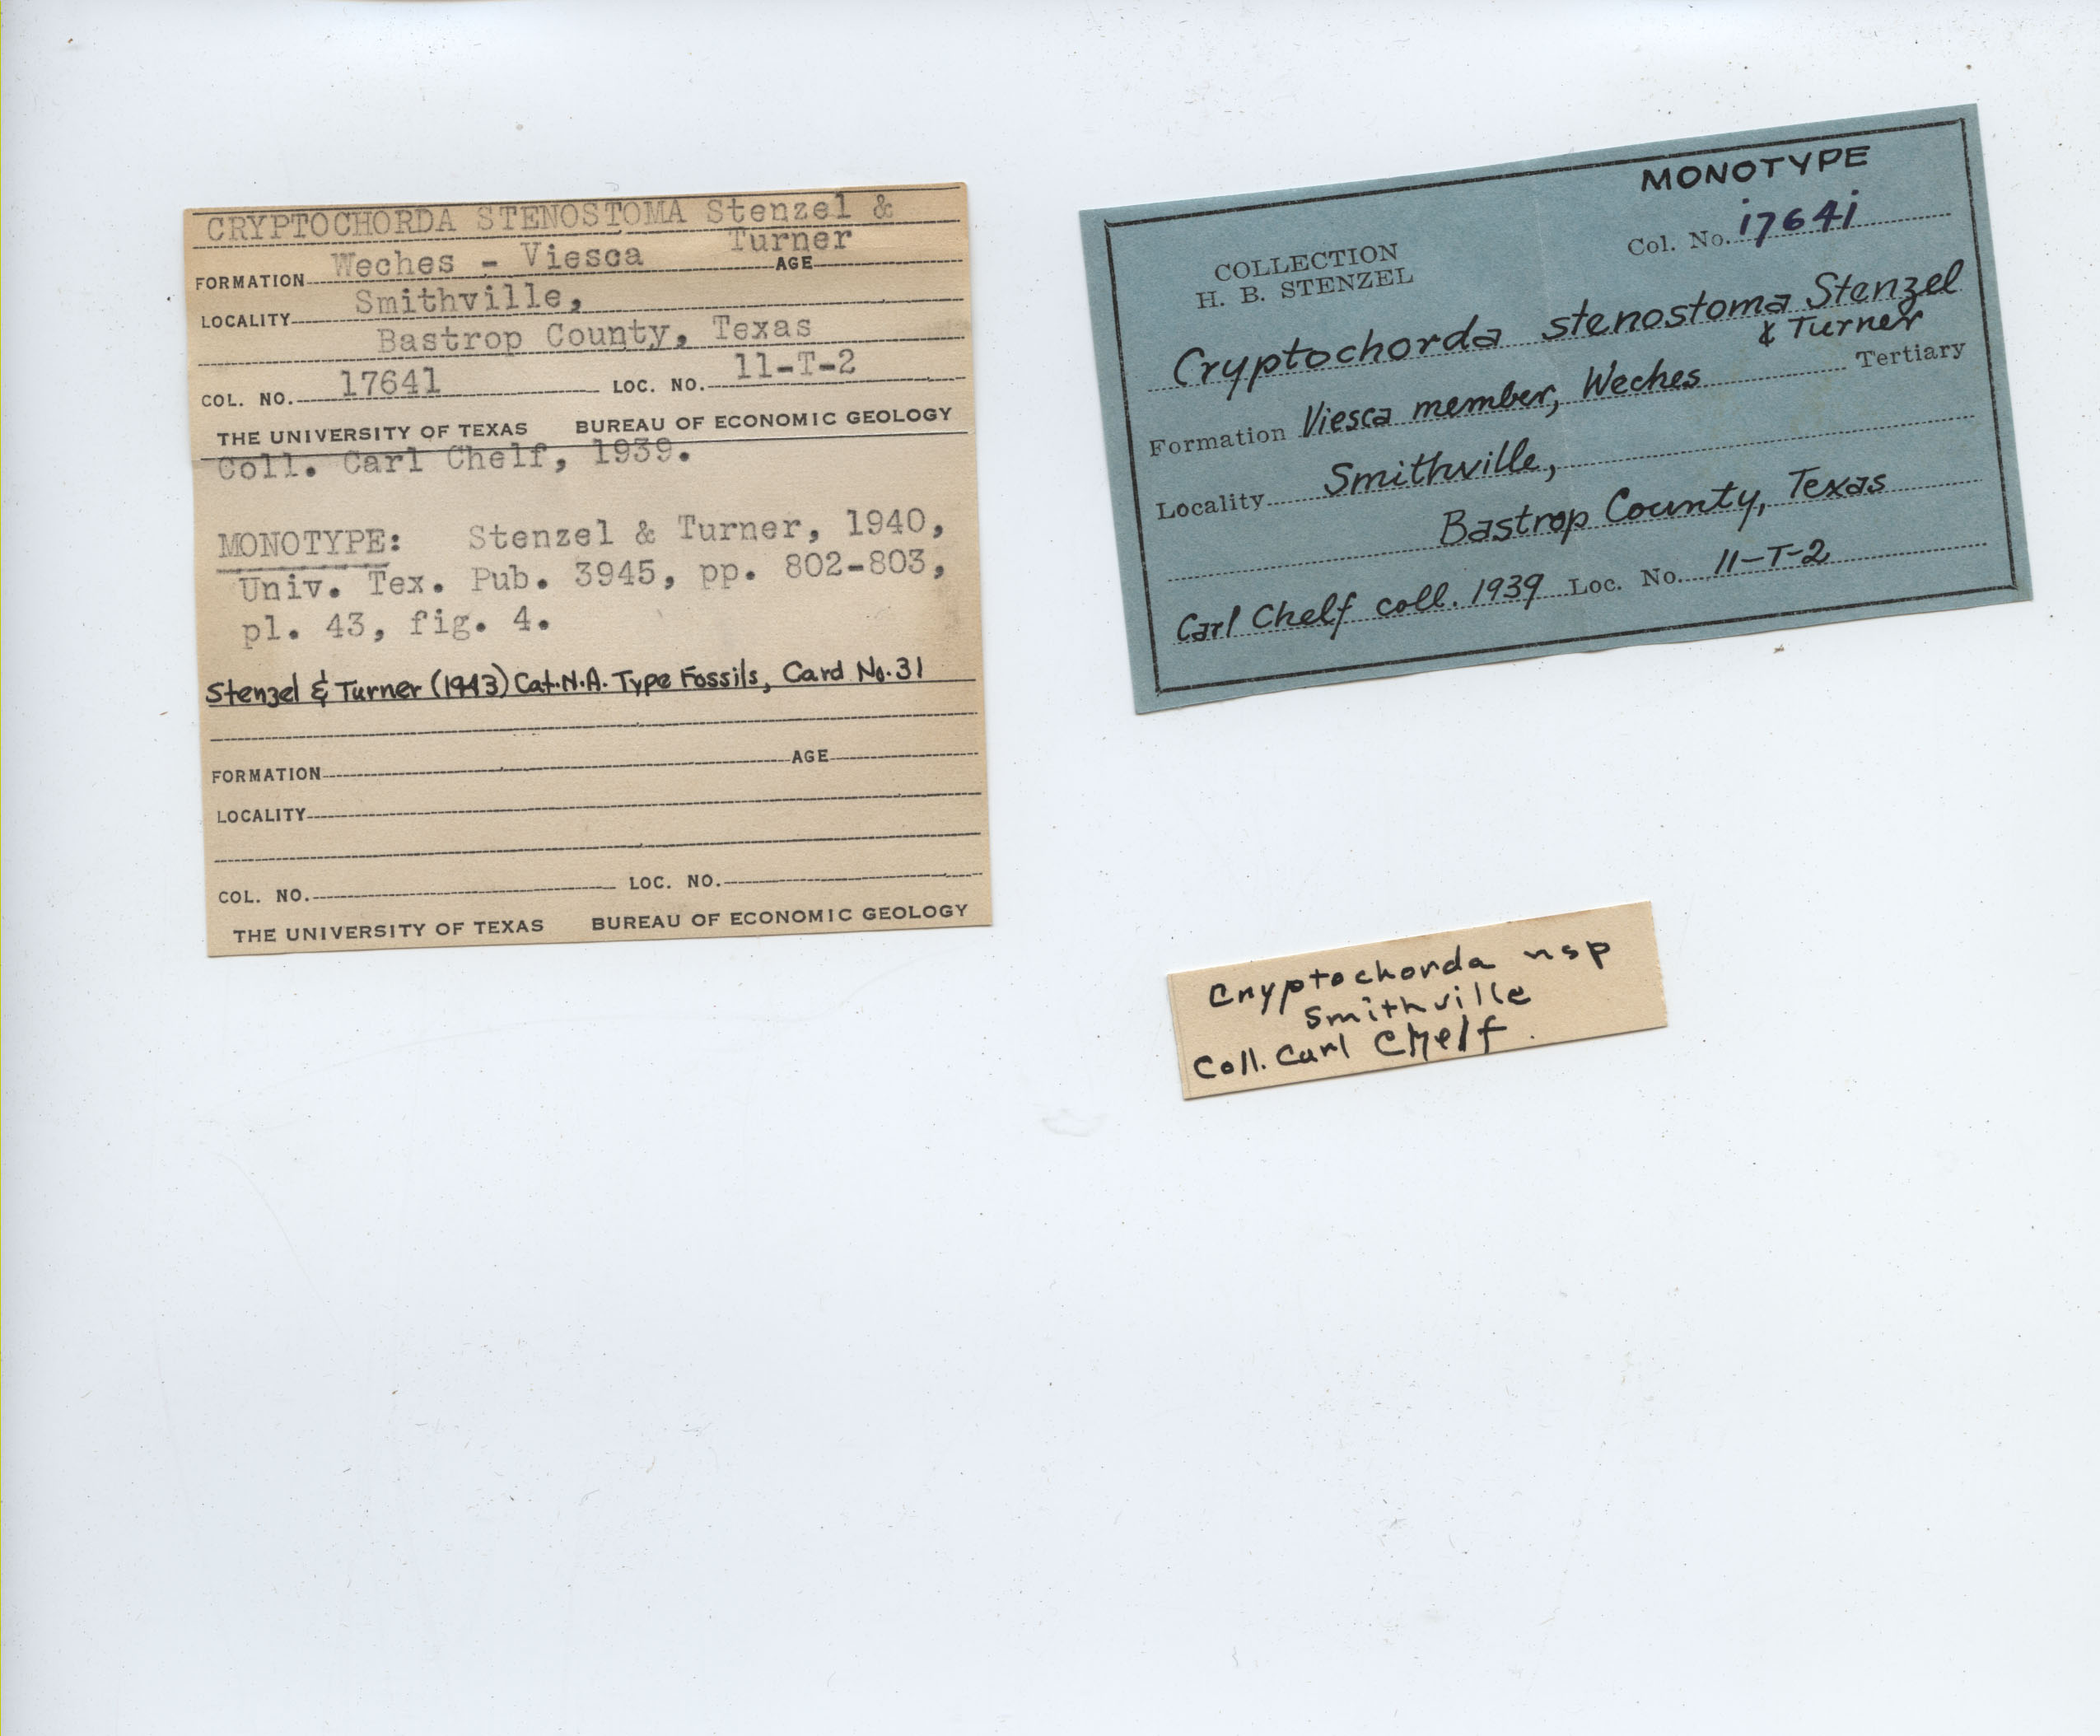 CRYPTOCHORDA STENOSTOMA Stenzel &
Turner
FORMATION Weches - Viesca AGE
LOCALITY Smithville,
Bastrop County, Texas
COL. NO. 17641 LOC. NO. 11-T-2
THE UNIVERSITY OF TEXAS BUREAU OF ECONOMIC GEOLOGY
Coll. Carl Chelf, 1939.
MONOTYPE: Stenzel & Turner, 1940,
Univ. Tex. Pub. 3945, pp. 802-803,
pl. 43, fig. 4.
Stenzel & Turner (1943) Cat. N.A. Type Fossils, Card No. 31
FORMATION AGE
LOCALITY
COL. NO. LOC. NO.
THE UNIVERSITY OF TEXAS BUREAU OF ECONOMIC GEOLOGY
MONOTYPE
COLLECTION
H. B. STENZEL
Col. No. 17641
Cryptochorda stenostoma Stenzel
& Turner
Tertiary
Formation Viesca member, Weches
Locality Smithville,
Bastrop County, Texas
Carl Chelf coll. 1939 Loc. No. 11-T-2
Cryptochorda nsp
Smithville
Coll. Carl Chelf.